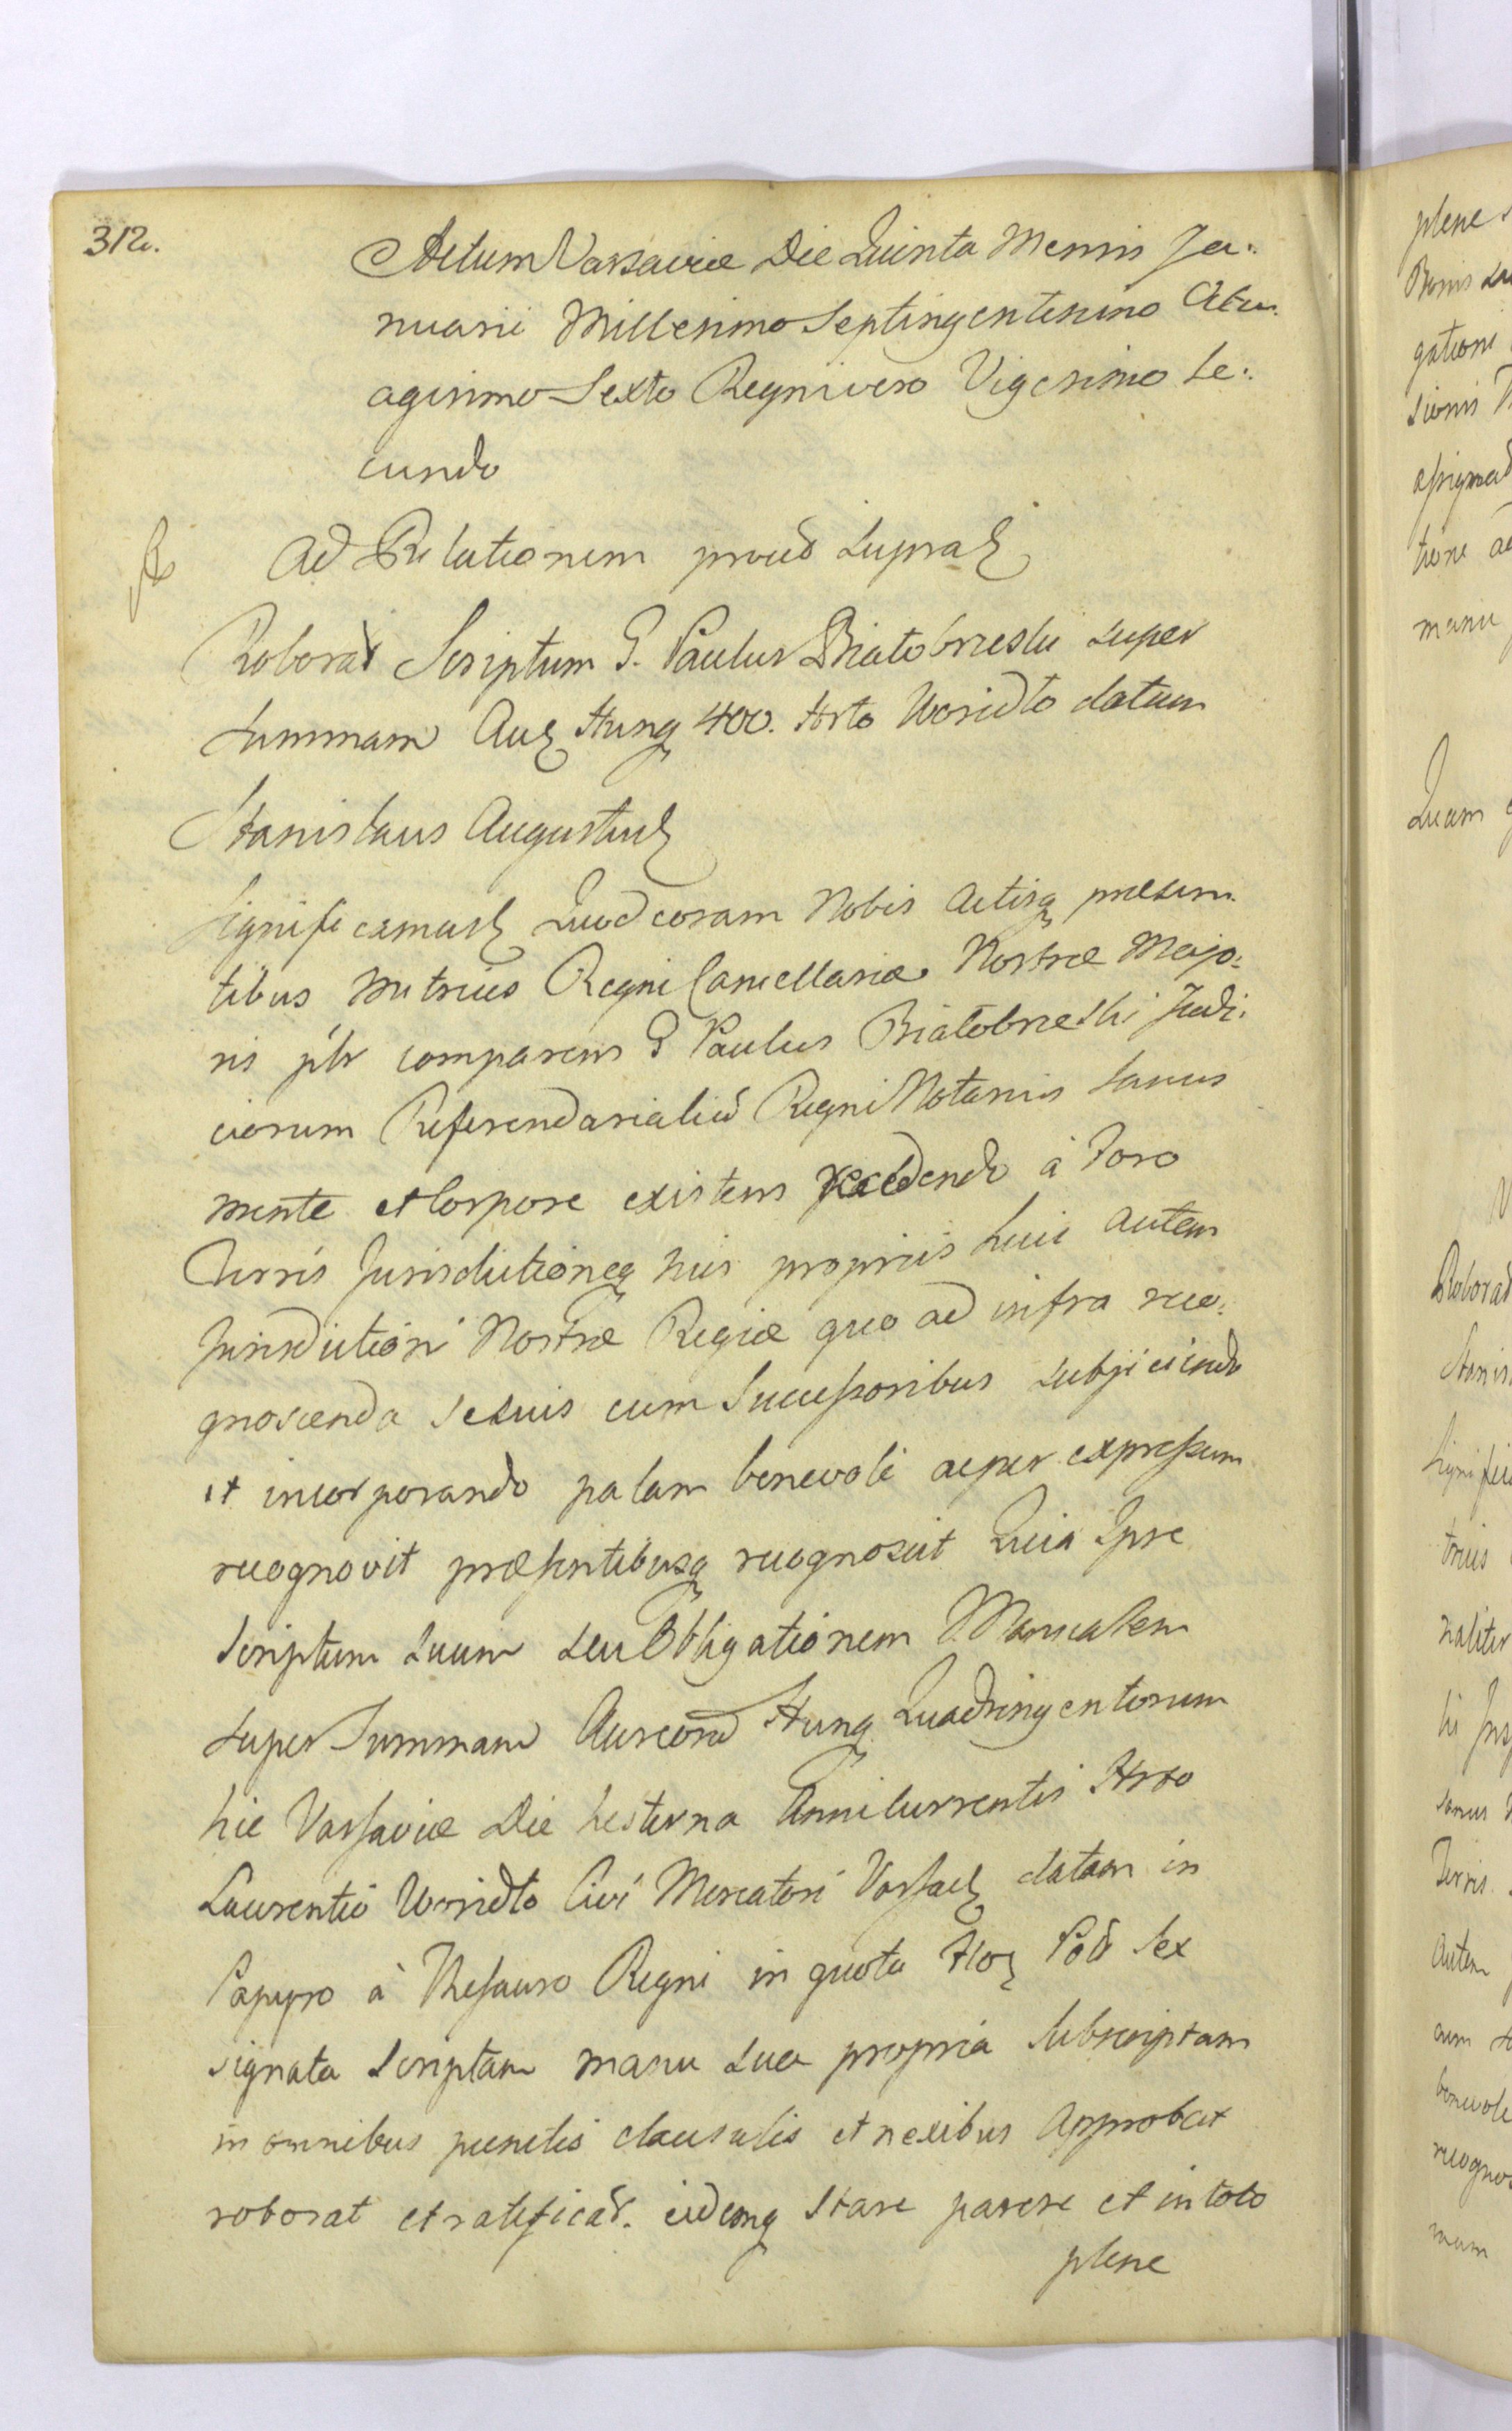 312.
Actum Varsaviæ Die Quinta Mensis Ja:
nuarii Millesimo Septingentesimo Octu
agesimo Sexto Regni vero Vigesimo Se:
cundo
Ad Relationem prout supra
Roborat Scriptum G. Paulus Białobrzeski super
summam Aur Hung 400. Hrto Woridto datum
Stanislaus Augustus
Significamus Quod coram Nobis Actisq præsen
tibus Metrices Regni Cancellariæ Nostræ Majo:
ris plr comparens G Paulus Białobrzeski Judi:
ciorum Referendarialiu Regni Notarius sanus
mente et Corpore existens recedendo à Foro
Terris Jurisdictioneq suis propriis huic autem
Jurisdictioni Nostræ Regiæ quo ad infra reco:
gnoscenda se suis cum Successoribus subjiciendo
et incorporando palam benevole ac per expressum
recognovit præsentibusq recognoscit Quia Ipse
Scriptum suum seu Obligationem Manualem
super Summam Aureoru Hung Quadringentorum
hic Varsaviæ Die hesterna Anni Currentis Hrto
Laurentio Woridto Civi Mercatori Varsav datam in
Papyro à Thesauro Regni in quota Flor Pol Sex
signata scriptam manu sua propria Subscriptam
in omnibus punctis clausulis et nexibus Approbat
roborat et ratificat. eidemq stare parere et in toto
plene